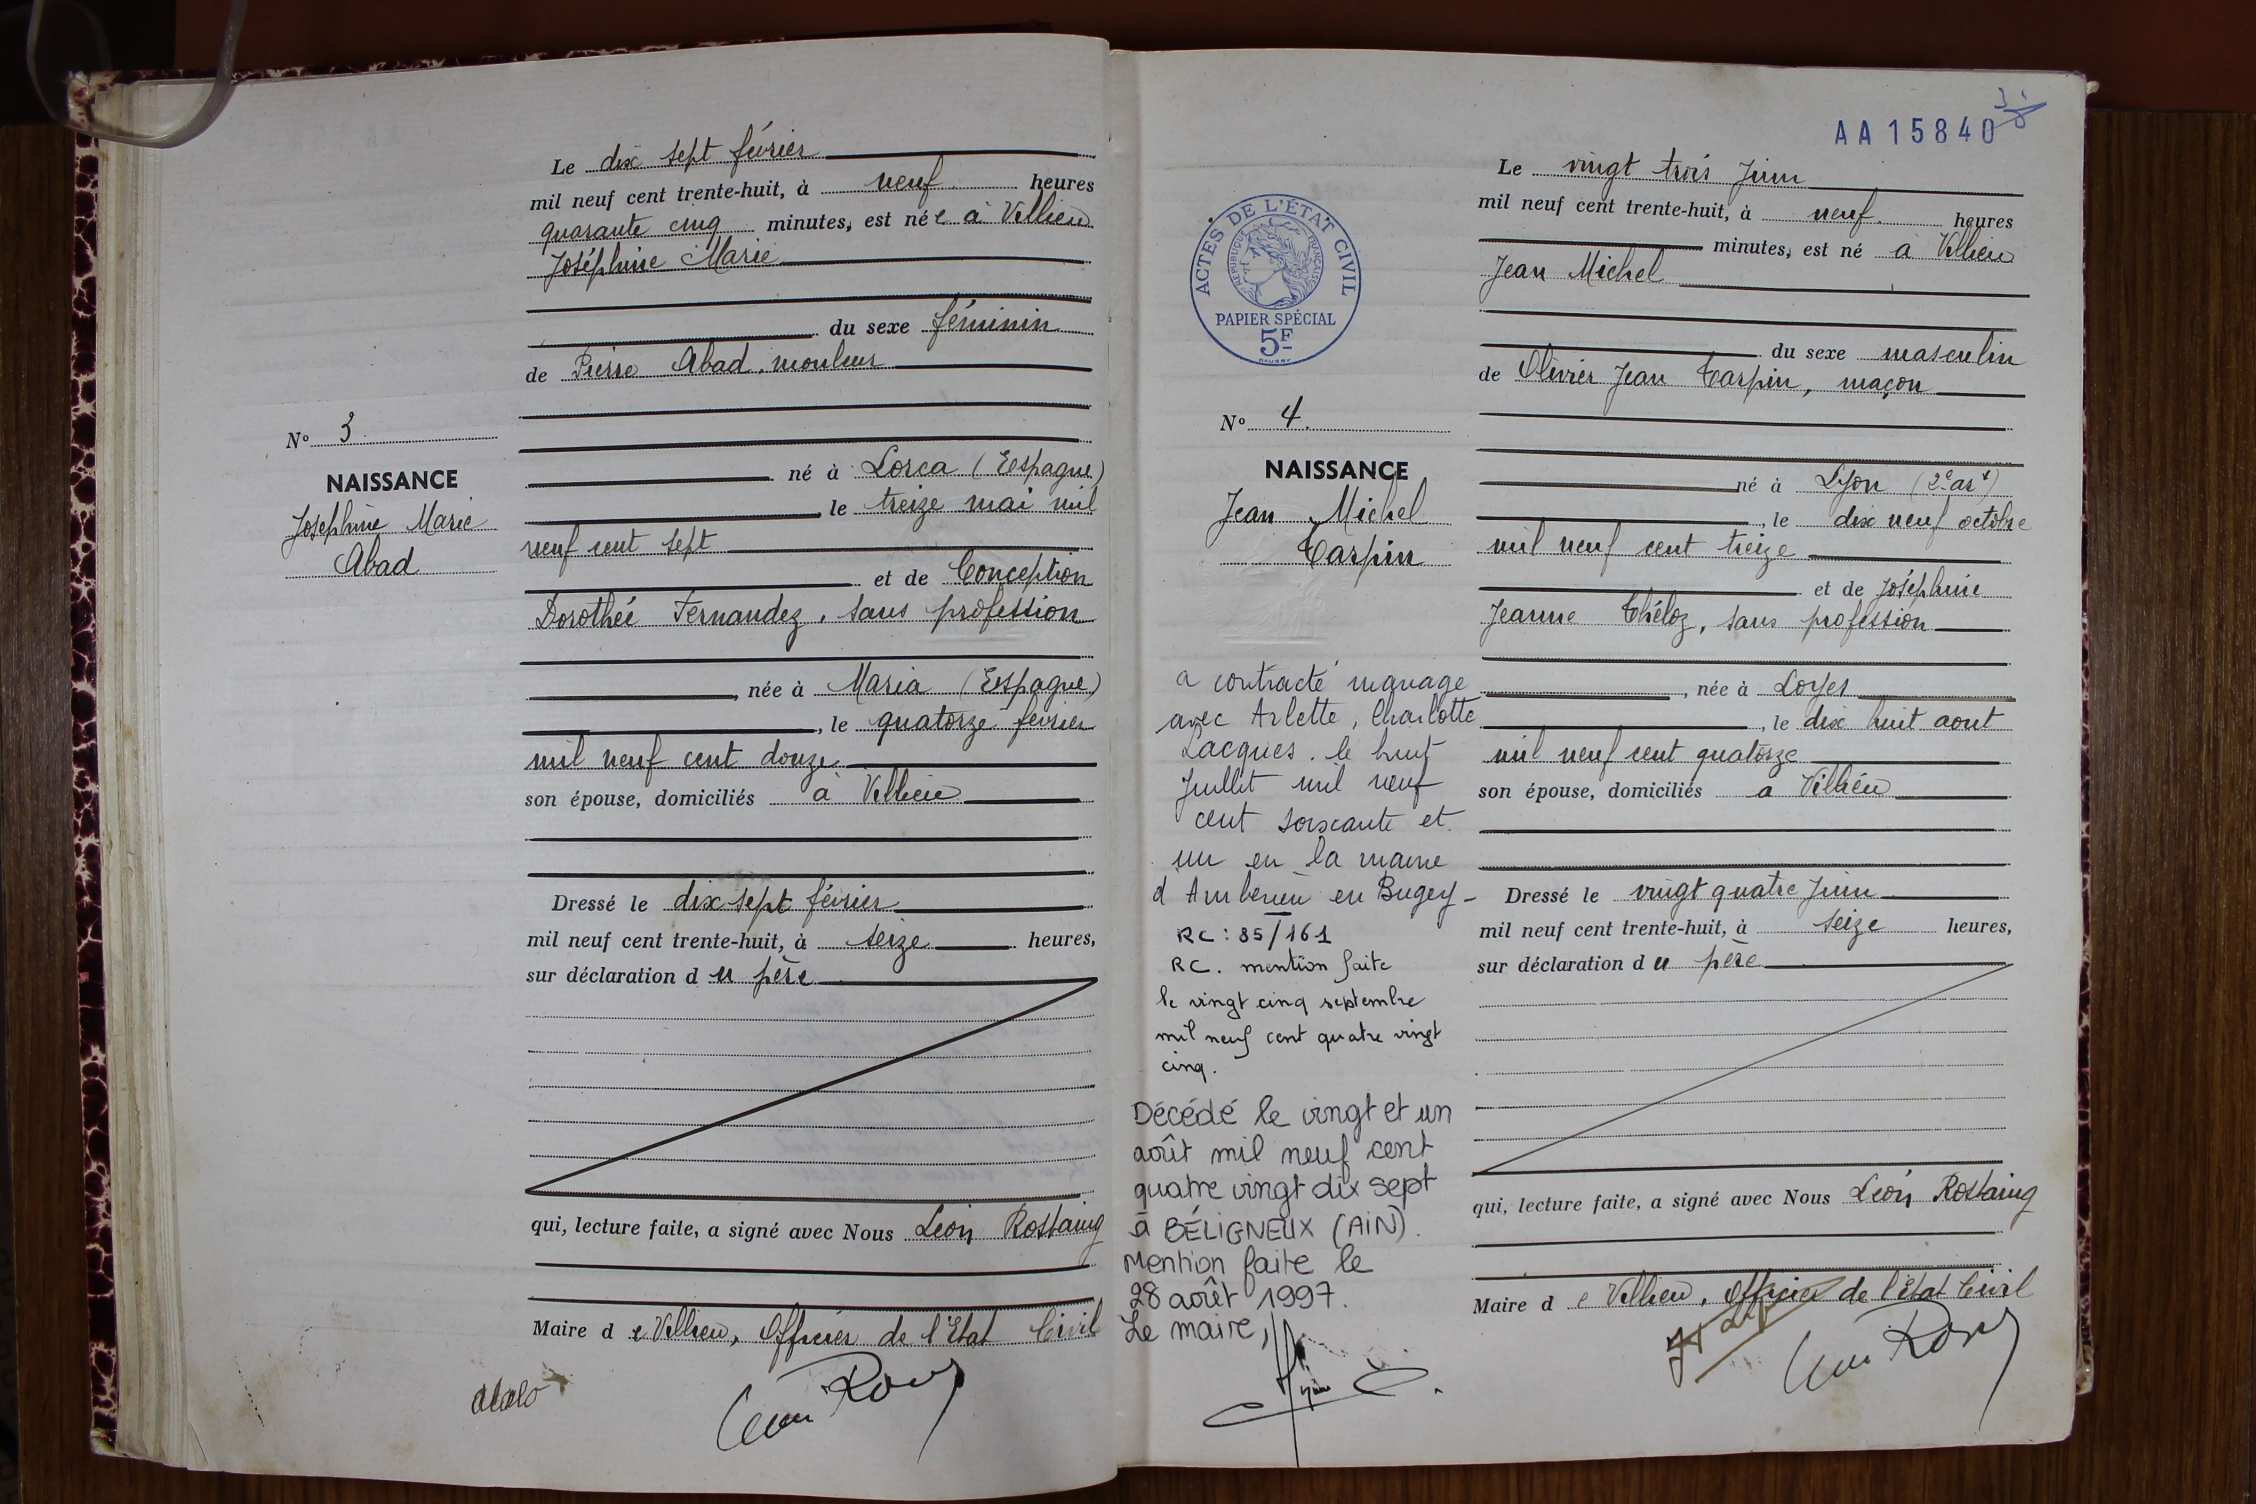 Le dix sept février
mil neuf cent trente-huit, à neuf heures
quarante cinq minutes, est née à Villieu
Joséphine Marie
du sexe féminin
de Pierre Abad, mouleur
né à Lorca (Espagne)
le treize mai mil
neuf cent sept
et de Conception
Dorothée Fernandez, sans profession
, née à Maria (Espagne)
, le quatorze février
mil neuf cent douze
son épouse, domiciliés à Villieu
Dressé le dix sept février
mil neuf cent trente-huit, à seize heures,
sur déclaration du père
qui, lecture faite, a signé avec Nous Léon Rostaing
Maire de Villieu, Officier de l'Etat Civil
N° 3
NAISSANCE
Joséphine Marie
Abad
AA 15840
ACTES DE L'ÉTAT CIVIL
RÉPUBLIQUE FRANÇAISE
PAPIER SPÉCIAL
5F
N° 4.
NAISSANCE
Jean Michel
Carpin
a contracté mariage
avec Arlette, Charlotte
Lacques. le huit
Juillet mil neuf
cent soixante et
un en la mairie
d'Ambérieu en Bugey -
RC : 85/161
RC. mention faite
le vingt cinq septembre
mil neuf cent quatre vingt
cinq.
Décédé le vingt et un
août mil neuf cent
quatre vingt dix sept
à BÉLIGNEUX (AIN).
Mention faite le
28 août 1997.
Le maire,
Le vingt trois Juin
mil neuf cent trente-huit, à neuf. heures
minutes, est né à Villieu
Jean Michel
du sexe masculin
de Olivier Jean Carpin, maçon
né à Lyon (2e art)
, le dix neuf octobre
mil neuf cent treize
et de Joséphine
Jeanne Théloz, sans profession
, née à Loyes
, le dix huit aout
mil neuf cent quatorze
son épouse, domiciliés a Villieu
Dressé le vingt quatre Juin
mil neuf cent trente-huit, à seize heures,
sur déclaration du père
qui, lecture faite, a signé avec Nous Léon Rostaing
Maire de Villieu, Officier de l'état Civil